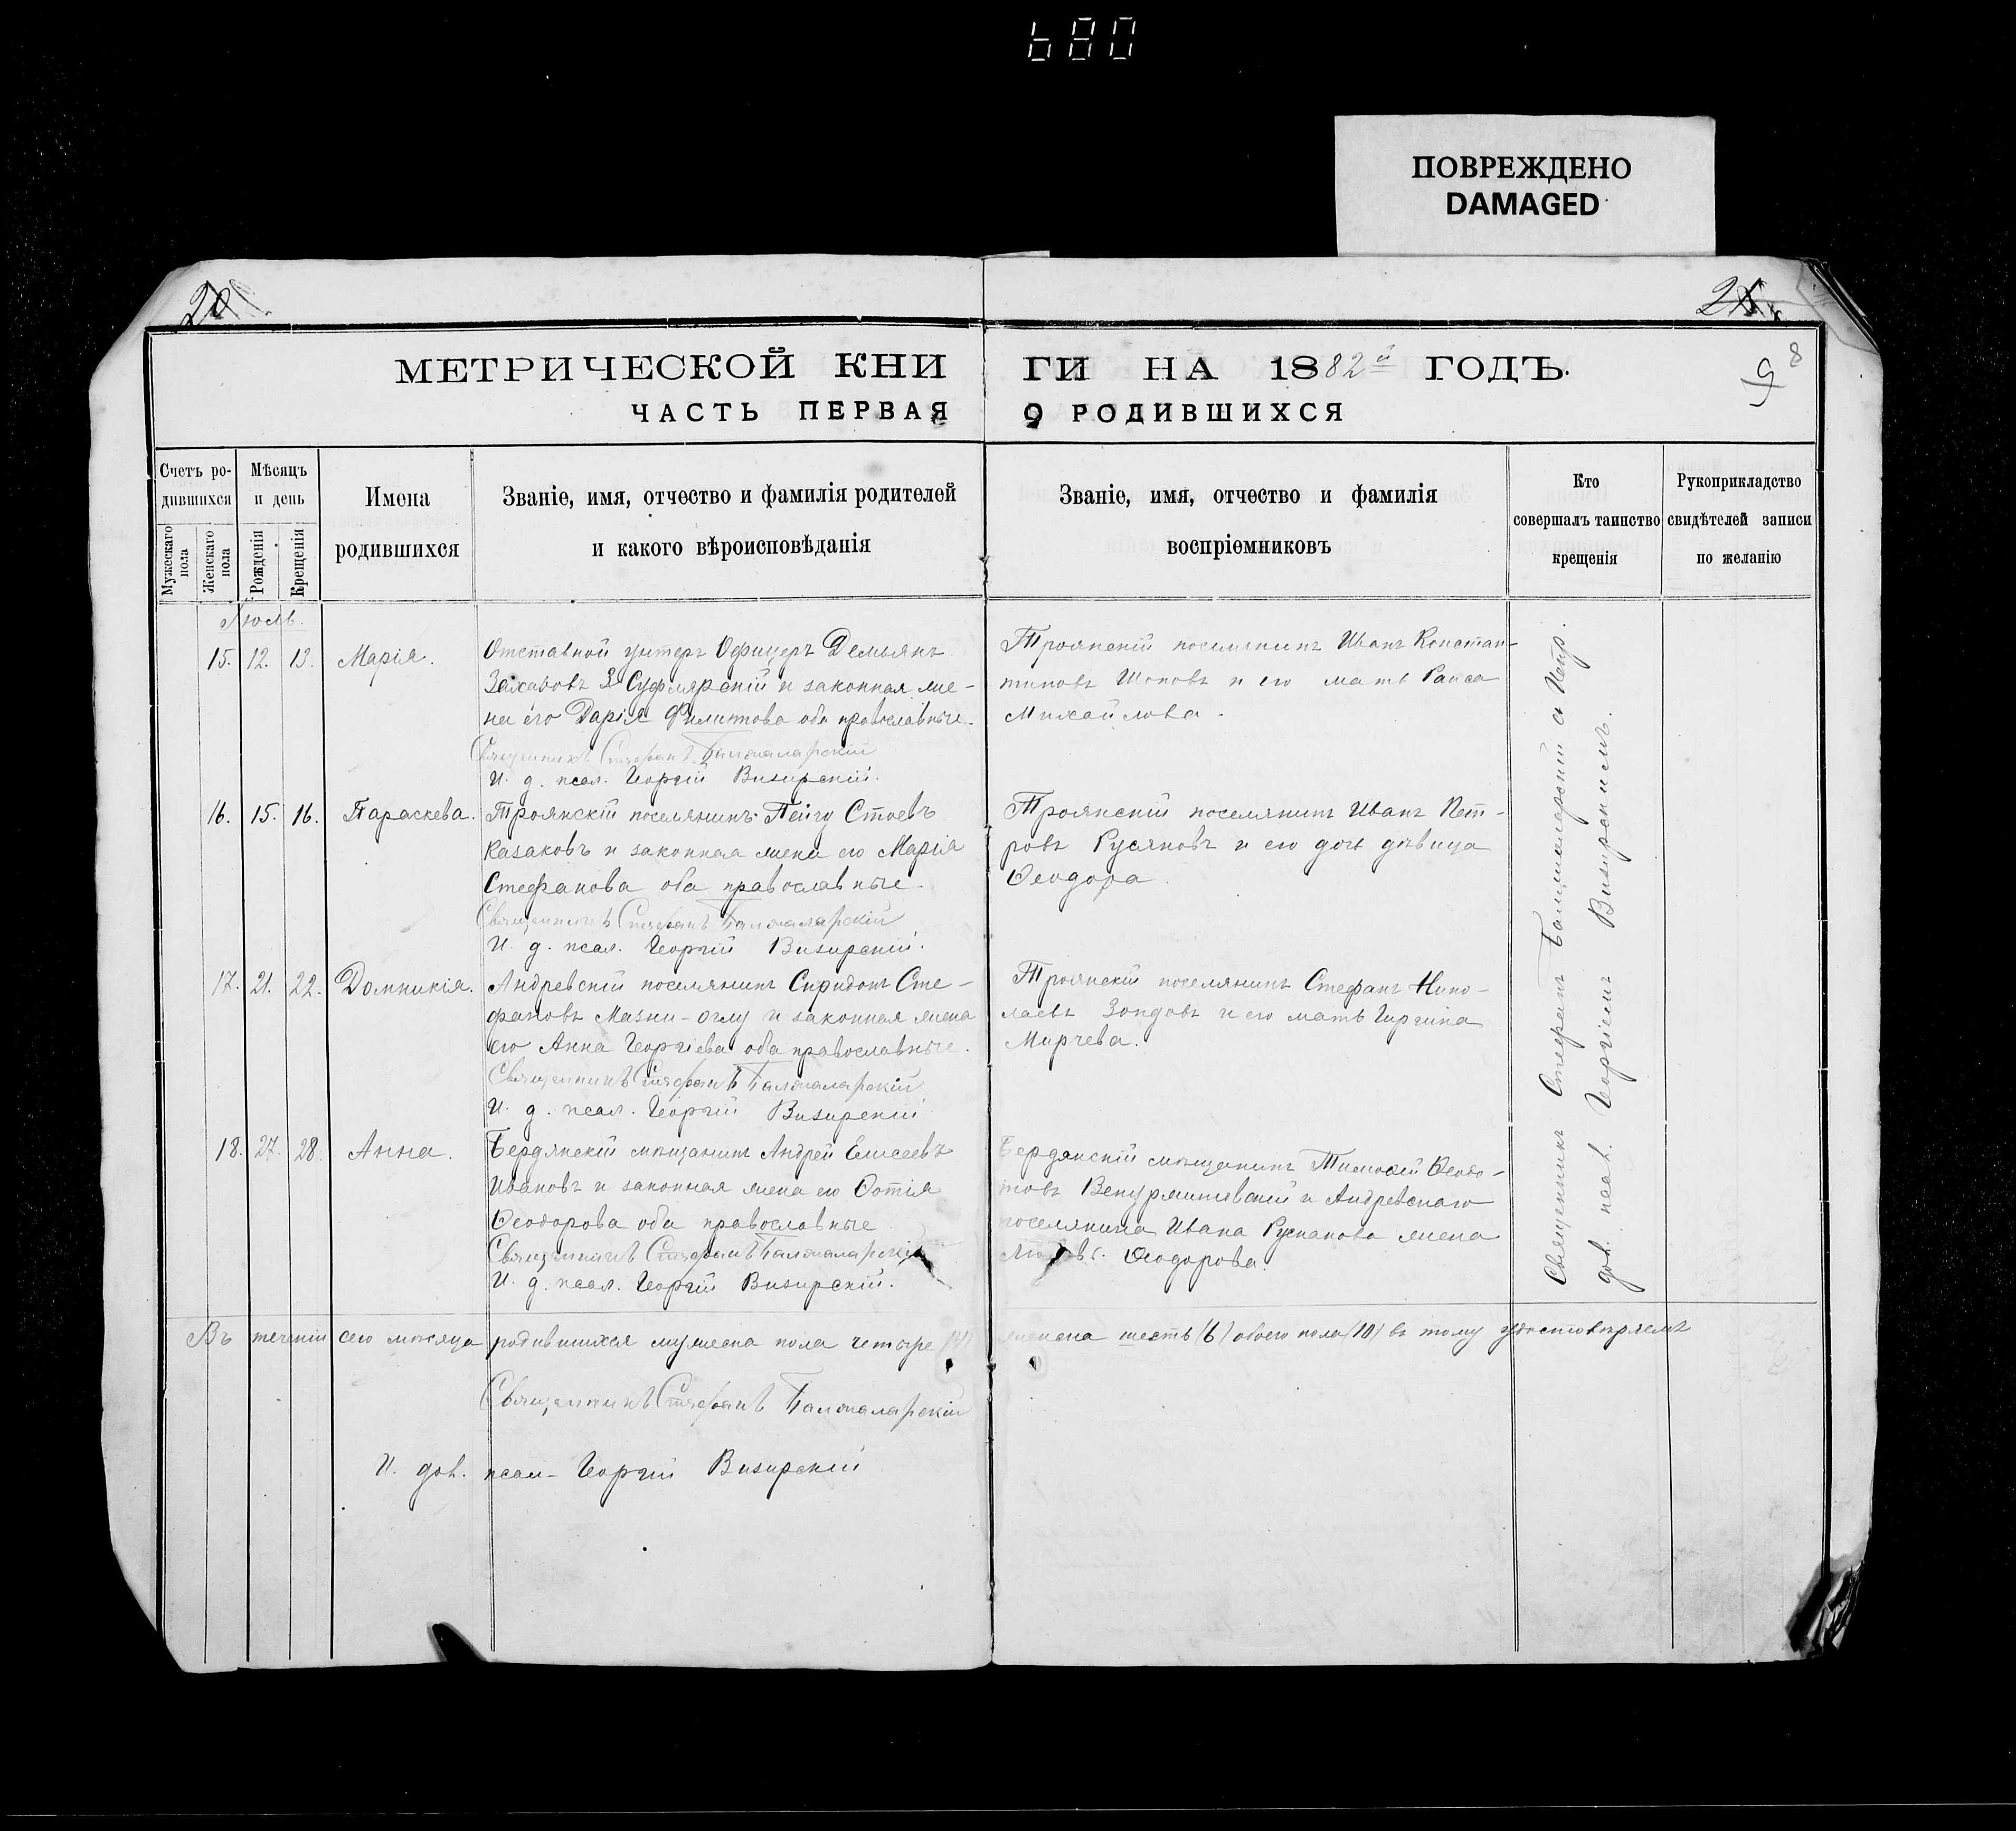 680
ПОВРЕЖДЕНО
DAMAGED
МЕТРИЧЕСКОЙ КНИ
ЧАСТЬ ПЕРВАЯ
ГИ НА 1882й ГОДЪ.
О РОДИВШИХСЯ
9
8
Счетъ ро-
дившихся
Мужескаго
пола
Женскаго
пола
Мѣсяцъ
и день
Рожденія
Крещенія
Имена
родившихся
Званіе, имя, отчество и фамилія родителей
и какого вѣроисповѣданія
Званіе, имя, отчество и фамилія
воспріемниковъ
Кто
совершалъ таинство
крещенія
Рукоприкладство
свидѣтелей записи
по желанію
Июль.
15. 12. 13. Марія.
Отставной унтеръ Офицеръ Демьянъ
и законная же-
на его Дарія Филипова оба православные.
Священникъ Стефанъ
И. д. псал. Георгій Визирскій.
Троянскій поселянинъ Иванъ Констан-
тиновъ и его мать Раиса
Михайлова.
16. 15. 16. Параскева.
Троянскій поселянинъ Пейчу Стоевъ
Казаковъ и законная жена его Марія
Стефанова оба православные.
Священникъ Стефанъ
И. д. псал. Георгій Визирскій.
Троянскій поселянинъ Иванъ Пет-
ровъ Русяновъ и его дочь дѣвица
Ѳеодора
17. 21. 22. Домникія.
Андревскій поселянинъ Спридонъ Сте-
фановъ Мазни-оглу и законная жена
его Анна Георгіева оба православные.
Священникъ Стефанъ
И. д. псал. Георгій Визирскій
Троянскій поселянинъ Стефанъ Нико-
лаевъ Зондовъ и его мать Гиргина
Мирчева.
18. 27. 28. Анна.
Бердянскій мѣщанинъ Андрей Елисеевъ
Ивановъ и законная жена его Ѳотія
Ѳеодорова оба православные
Священникъ Стефанъ
И. д. псал. Георгій Визирскій.
Бердянскій мѣщанинъ Тимоѳей Ѳедо-
товъ и Андревскаго
поселянина Ивана Русланова жена
Ѳеодорова.
Священникъ Стефанъ
дол. псал. Георгіемъ Визирскимъ.
Въ теченіи сего мѣсяца родившихся мужеска пола четыре (4) женска шесть (6) обоего пола (10) въ тому удостовѣряемъ
Священникъ Стефанъ
И. дол. псал- Георгій Визирскій